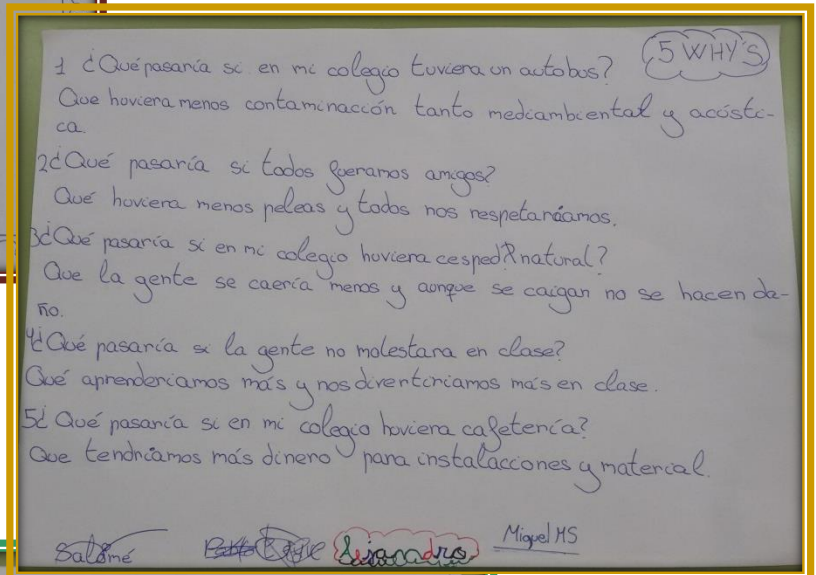 5 WHY'S
1 ¿Qué pasaría si en mi colegio tuviera un autobus?
Que huviera menos contaminacción tanto mediambiental y acústi-
ca.
2¿Qué pasaría si todos fueramos amigos?
Qué huviera menos peleas y todos nos respetaráamos.
3¿Qué pasaría si en mi colegio huviera cesped natural?
Que la gente se caería menos y aunque se caigan no se hacen da-
ño.
4¿Qué pasaría si la gente no molestara en clase?
Qué aprenderiamos más y nos divertiriamos más en clase.
5¿Qué pasaría si en mi colegio huviera cafetería?
Que tendríamos más dinero para instalacciones y material.
Salomé Alejanadro Miguel MS